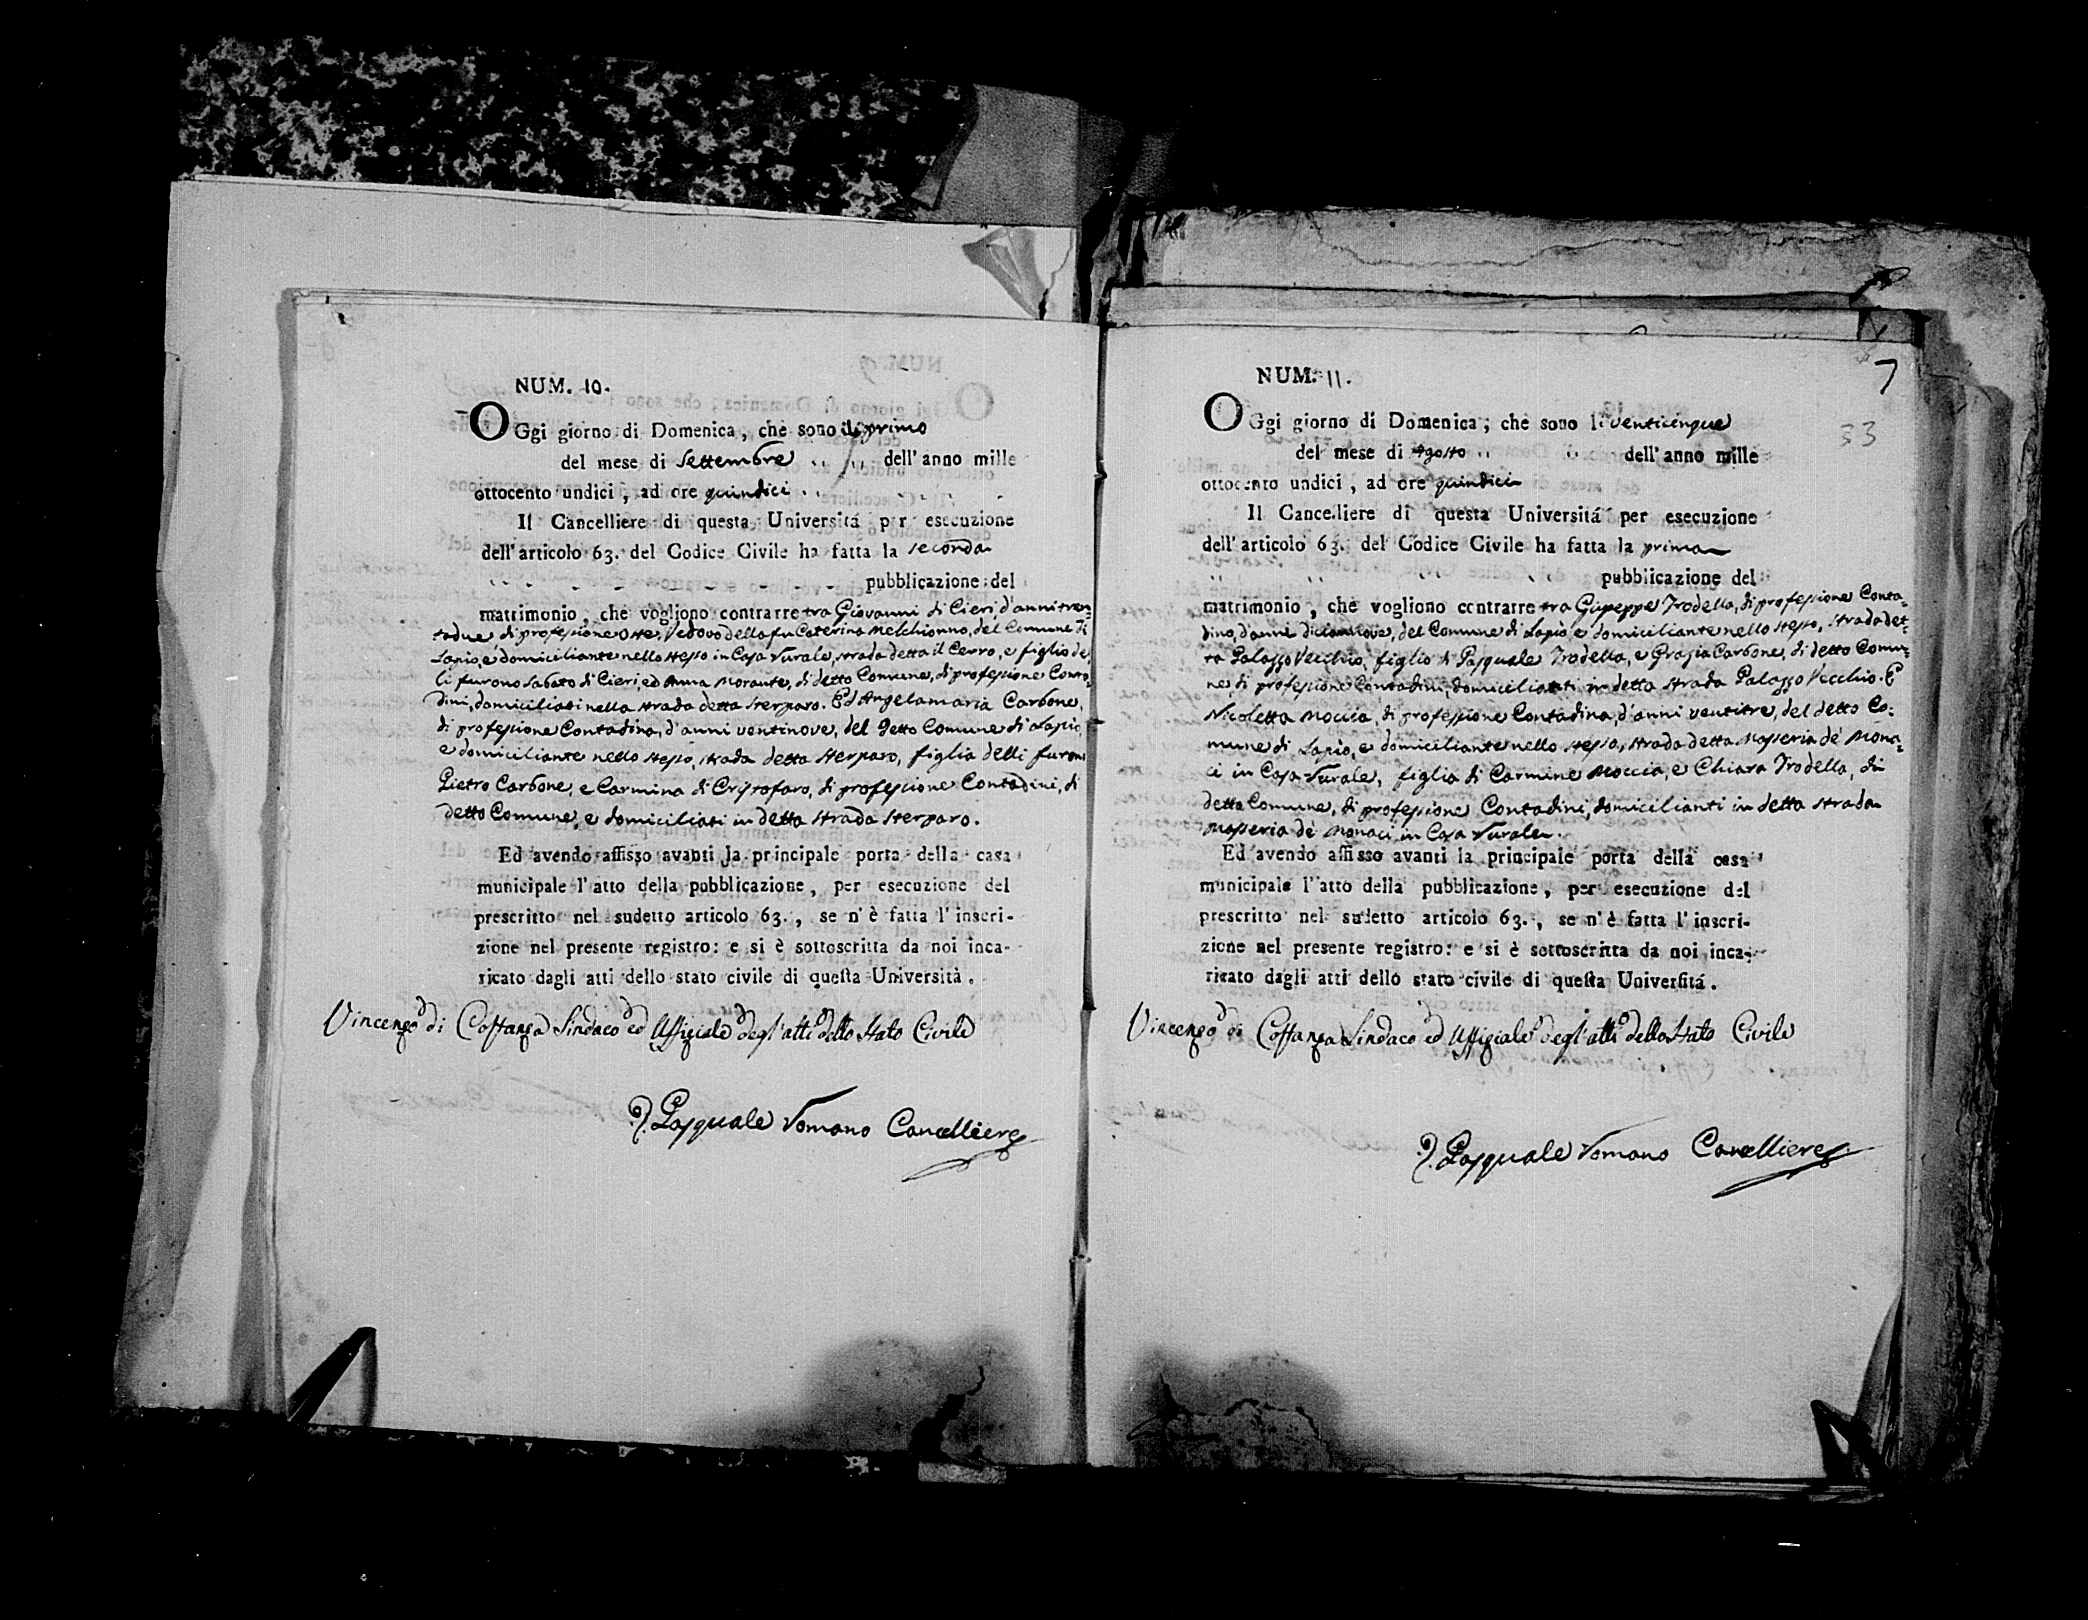 NUM. 10.
OGgi giorno di Domenica, che sono il primo
del mese di Settembre dell'anno mille
ottocento undici, ad ore quindici
Il Cancelliere di questa Universitá per esecuzione
dell'articolo 63. del Codice Civile ha fatta la seconda
pubblicazione del
matrimonio, che vogliono contrarre tra Giovanni di Cieri, d'anni tren-
tadue, di professione Oste, Vedovo della fu Caterina Melchionno, del Comune di
Lapio, e domiciliante nello stesso in Casa rurale, strada detta il Cerro, e figlio de-
li furono Sabato di Cieri, ed Anna Morante, di detto Comune, di professione Conta-
dini, domiciliati nella strada detta Sterparo. Ed Angelamaria Carbone,
di professione Contadina, d'anni ventinove, del detto Comune di Lapio,
e domiciliante nello stesso, strada detta Sterparo, figlia delli furono
Pietro Carbone, e Carmina di Cristofaro, di professione Contadini, di
detto Comune, e domiciliati in detta strada Sterparo.
Ed avendo affisso avanti la principale porta della casa
municipale l'atto della pubblicazione, per esecuzione del
prescritto nel sudetto articolo 63., se n'è fatta l'inscri-
zione nel presente registro: e si è sottoscritta da noi inca-
ricato dagli atti dello stato civile di questa Università.
Vincenzo di Costanza Sindaco ed Uffiziale degl'atti dello Stato Civile
D. Pasquale Romano Cancelliere
NUM. 11.
7
33
OGgi giorno di Domenica; che sono li venticinque
del mese di Agosto dell'anno mille
ottocento undici, ad ore quindici
Il Cancelliere di questa Universitá per esecuzione
dell'articolo 63. del Codice Civile ha fatta la prima
pubblicazione del
matrimonio, che vogliono contrarre tra Giuseppe Trodella, di professione Conta-
dino, d'anni diciannove, del Comune di Lapio, e domiciliante nello stesso, strada det-
ta Palazzo Vecchio, figlio di Pasquale Trodella, e Grazia Carbone, di detto Comu-
ne, di professione Contadini, domiciliati in detta strada Palazzo Vecchio. E
Nicoletta Moccia, di professione Contadina, d'anni ventitre, del detto Co-
mune di Lapio, e domiciliante nello stesso, strada detta Masseria de' Mona-
ci in Casa rurale, figlia di Carmine Moccia, e Chiara Trodella, di
detto Comune, di professione Contadini, domicilianti in detta strada
Masseria de' Monaci in Casa rurale.
Ed avendo affisso avanti la principale porta della casa
municipale l'atto della pubblicazione, per esecuzione del
prescritto nel sudetto articolo 63., se n'è fatta l'inscri-
zione nel presente registro: e si è sottoscritta da noi inca-
ricato dagli atti dello stato civile di questa Universitá.
Vincenzo di Costanza Sindaco ed Uffiziale degl'atti dello Stato Civile
D. Pasquale Romano Cancelliere